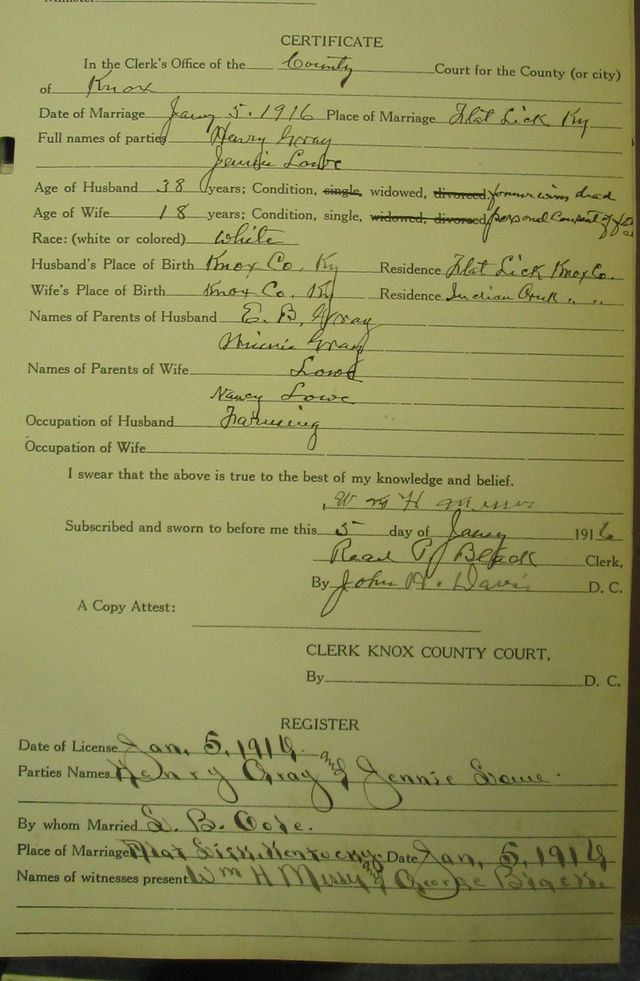 CERTIFICATE
In the Clerk's Office of the County Court for the County (or city)
of Knox
Date of Marriage Jany 5. 1916 Place of Marriage Flat Lick Ky
Full names of parties Henry Gray
Jennie Lowe
Age of Husband 38 years; Condition, single, widowed, divorced, former wives dead
Age of Wife 18 years; Condition, single, widowed, divorced, personal Consent of
Race: (white or colored) White
Husband's Place of Birth Knox Co. Ky Residence Flat Lick Knox Co.
Wife's Place of Birth Knox Co. Ky Residence Indian Creek " "
Names of Parents of Husband E. B. Gray
Minnie Gray
Names of Parents of Wife Lowe
Nancy Lowe
Occupation of Husband Farming
Occupation of Wife
I swear that the above is true to the best of my knowledge and belief.
Wm H
Subscribed and sworn to before me this 5 day of Jany 1916
Read P. Black Clerk,
By John H. Davis D. C.
A Copy Attest:
CLERK KNOX COUNTY COURT,
By D. C.
REGISTER
Date of License Jan. 5, 1916
Parties Names Henry Gray and Jennie Lowe.
By whom Married B. Cole.
Place of Marriage Flat Lick, Kentucky. Date Jan, 5, 1916
Names of witnesses present Wm H and George